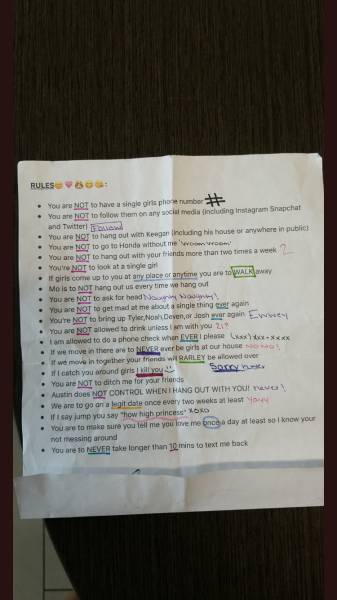 RULES😊💗👸😊😘:
• You are NOT to have a single girls phone number #
• You are NOT to follow them on any social media (including Instagram Snapchat
and Twitter) Follow
• You are NOT to hang out with Keegan (including his house or anywhere in public)
• You are NOT to go to Honda without me 'vroom vroom'
• You are NOT to hang out with your friends more than two times a week 2
• You're NOT to look at a single girl
• If girls come up to you at any place or anytime you are to WALK away
• Mo is to NOT hang out us every time we hang out
• You are NOT to ask for head Naughty Naughty!
• You are NOT to get mad at me about a single thing ever again
• You're NOT to bring up Tyler, Noah, Deven, or Josh ever again
• You are NOT allowed to drink unless I am with you 21?
• I am allowed to do a phone check when EVER I please (xxx) xxx-xxxx
• If we move in there are to NEVER ever be girls at our house
• If we move in together your friends will RARLEY be allowed over
• If I catch you around girls I kill you Sorry
• You are NOT to ditch me for your friends
• Austin does NOT CONTROL WHEN I HANG OUT WITH YOU! never!
• We are to go on a legit date once every two weeks at least Yayy
• If I say jump you say "how high princess" xoxo
• You are to make sure you tell me you love me once a day at least so I know your
not messing around
• You are to NEVER take longer than 10 mins to text me back